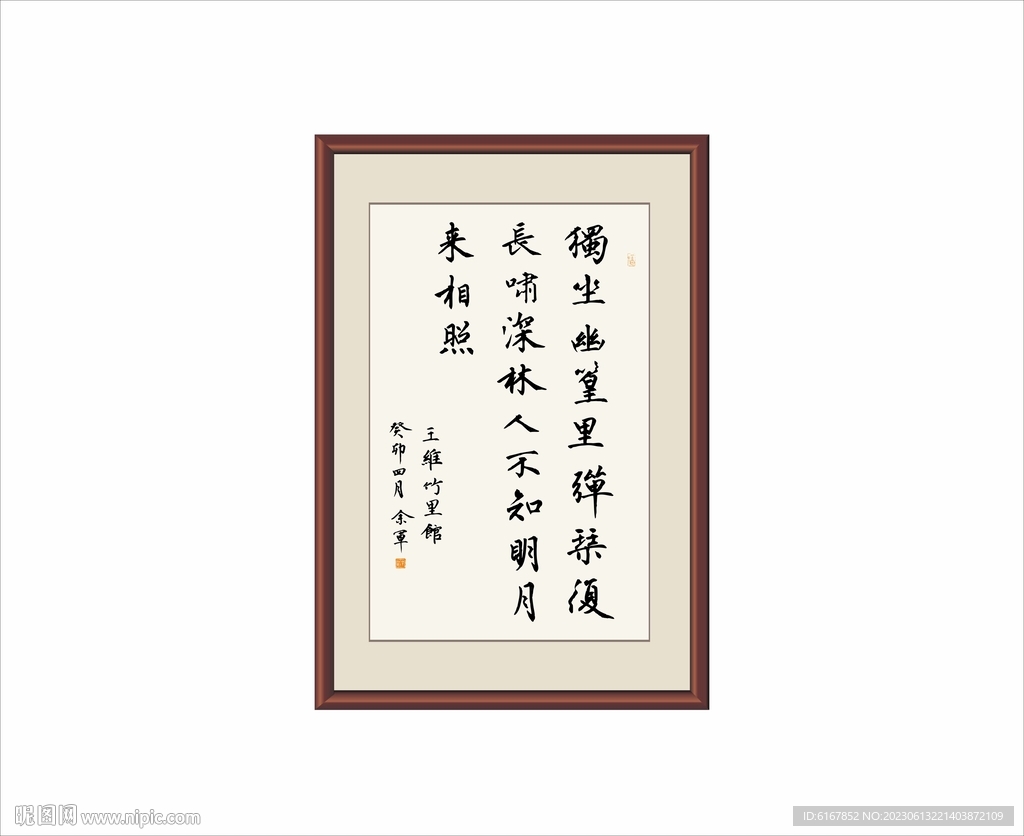 獨坐幽篁里彈琴復
長嘯深林人不知明月
来相照
王維竹里館
癸卯四月余軍
昵图网 www.nipic.com
ID:6167852 NO:20230613221403872109